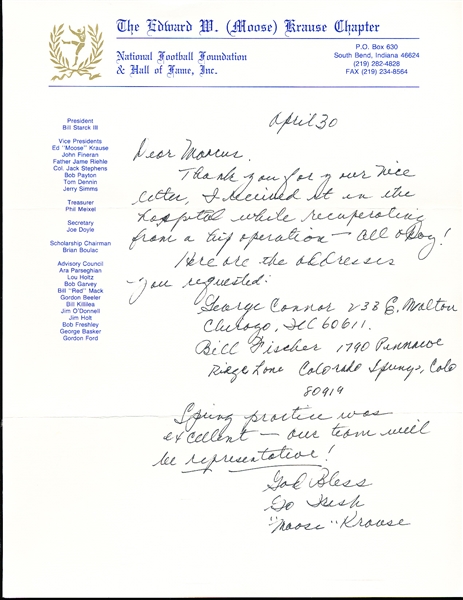 The Edward W. (Moose) Krause Chapter
National Football Foundation
& Hall of Fame, Inc.
P.O. Box 630
South Bend, Indiana 46624
(219) 282-4828
FAX (219) 234-8564
President
Bill Starck III
Vice Presidents
Ed "Moose" Krause
John Fineran
Father Jame Riehle
Col. Jack Stephens
Bob Payton
Tom Dennin
Jerry Simms
Treasurer
Phil Meixel
Secretary
Joe Doyle
Scholarship Chairman
Brian Boulac
Advisory Council
Ara Parseghian
Lou Holtz
Bob Garvey
Bill "Red" Mack
Gordon Beeler
Bill Killilea
Jim O'Donnell
Jim Holt
Bob Freshley
George Basker
Gordon Ford
April 30
Dear Marcus,
Thank you for your nice
letter, I received it in the
hospital while recuperating
from a hip operation — all okay!
Here are the addresses
you requested:
George Connor 233 E. Walton
Chicago, Ill 60611.
Bill Fischer 1790
Ridge Lane Colorado Springs, Colo
80919
Spring practice was
excellent — our team will
be representative!
God Bless
Go Irish
"Moose" Krause